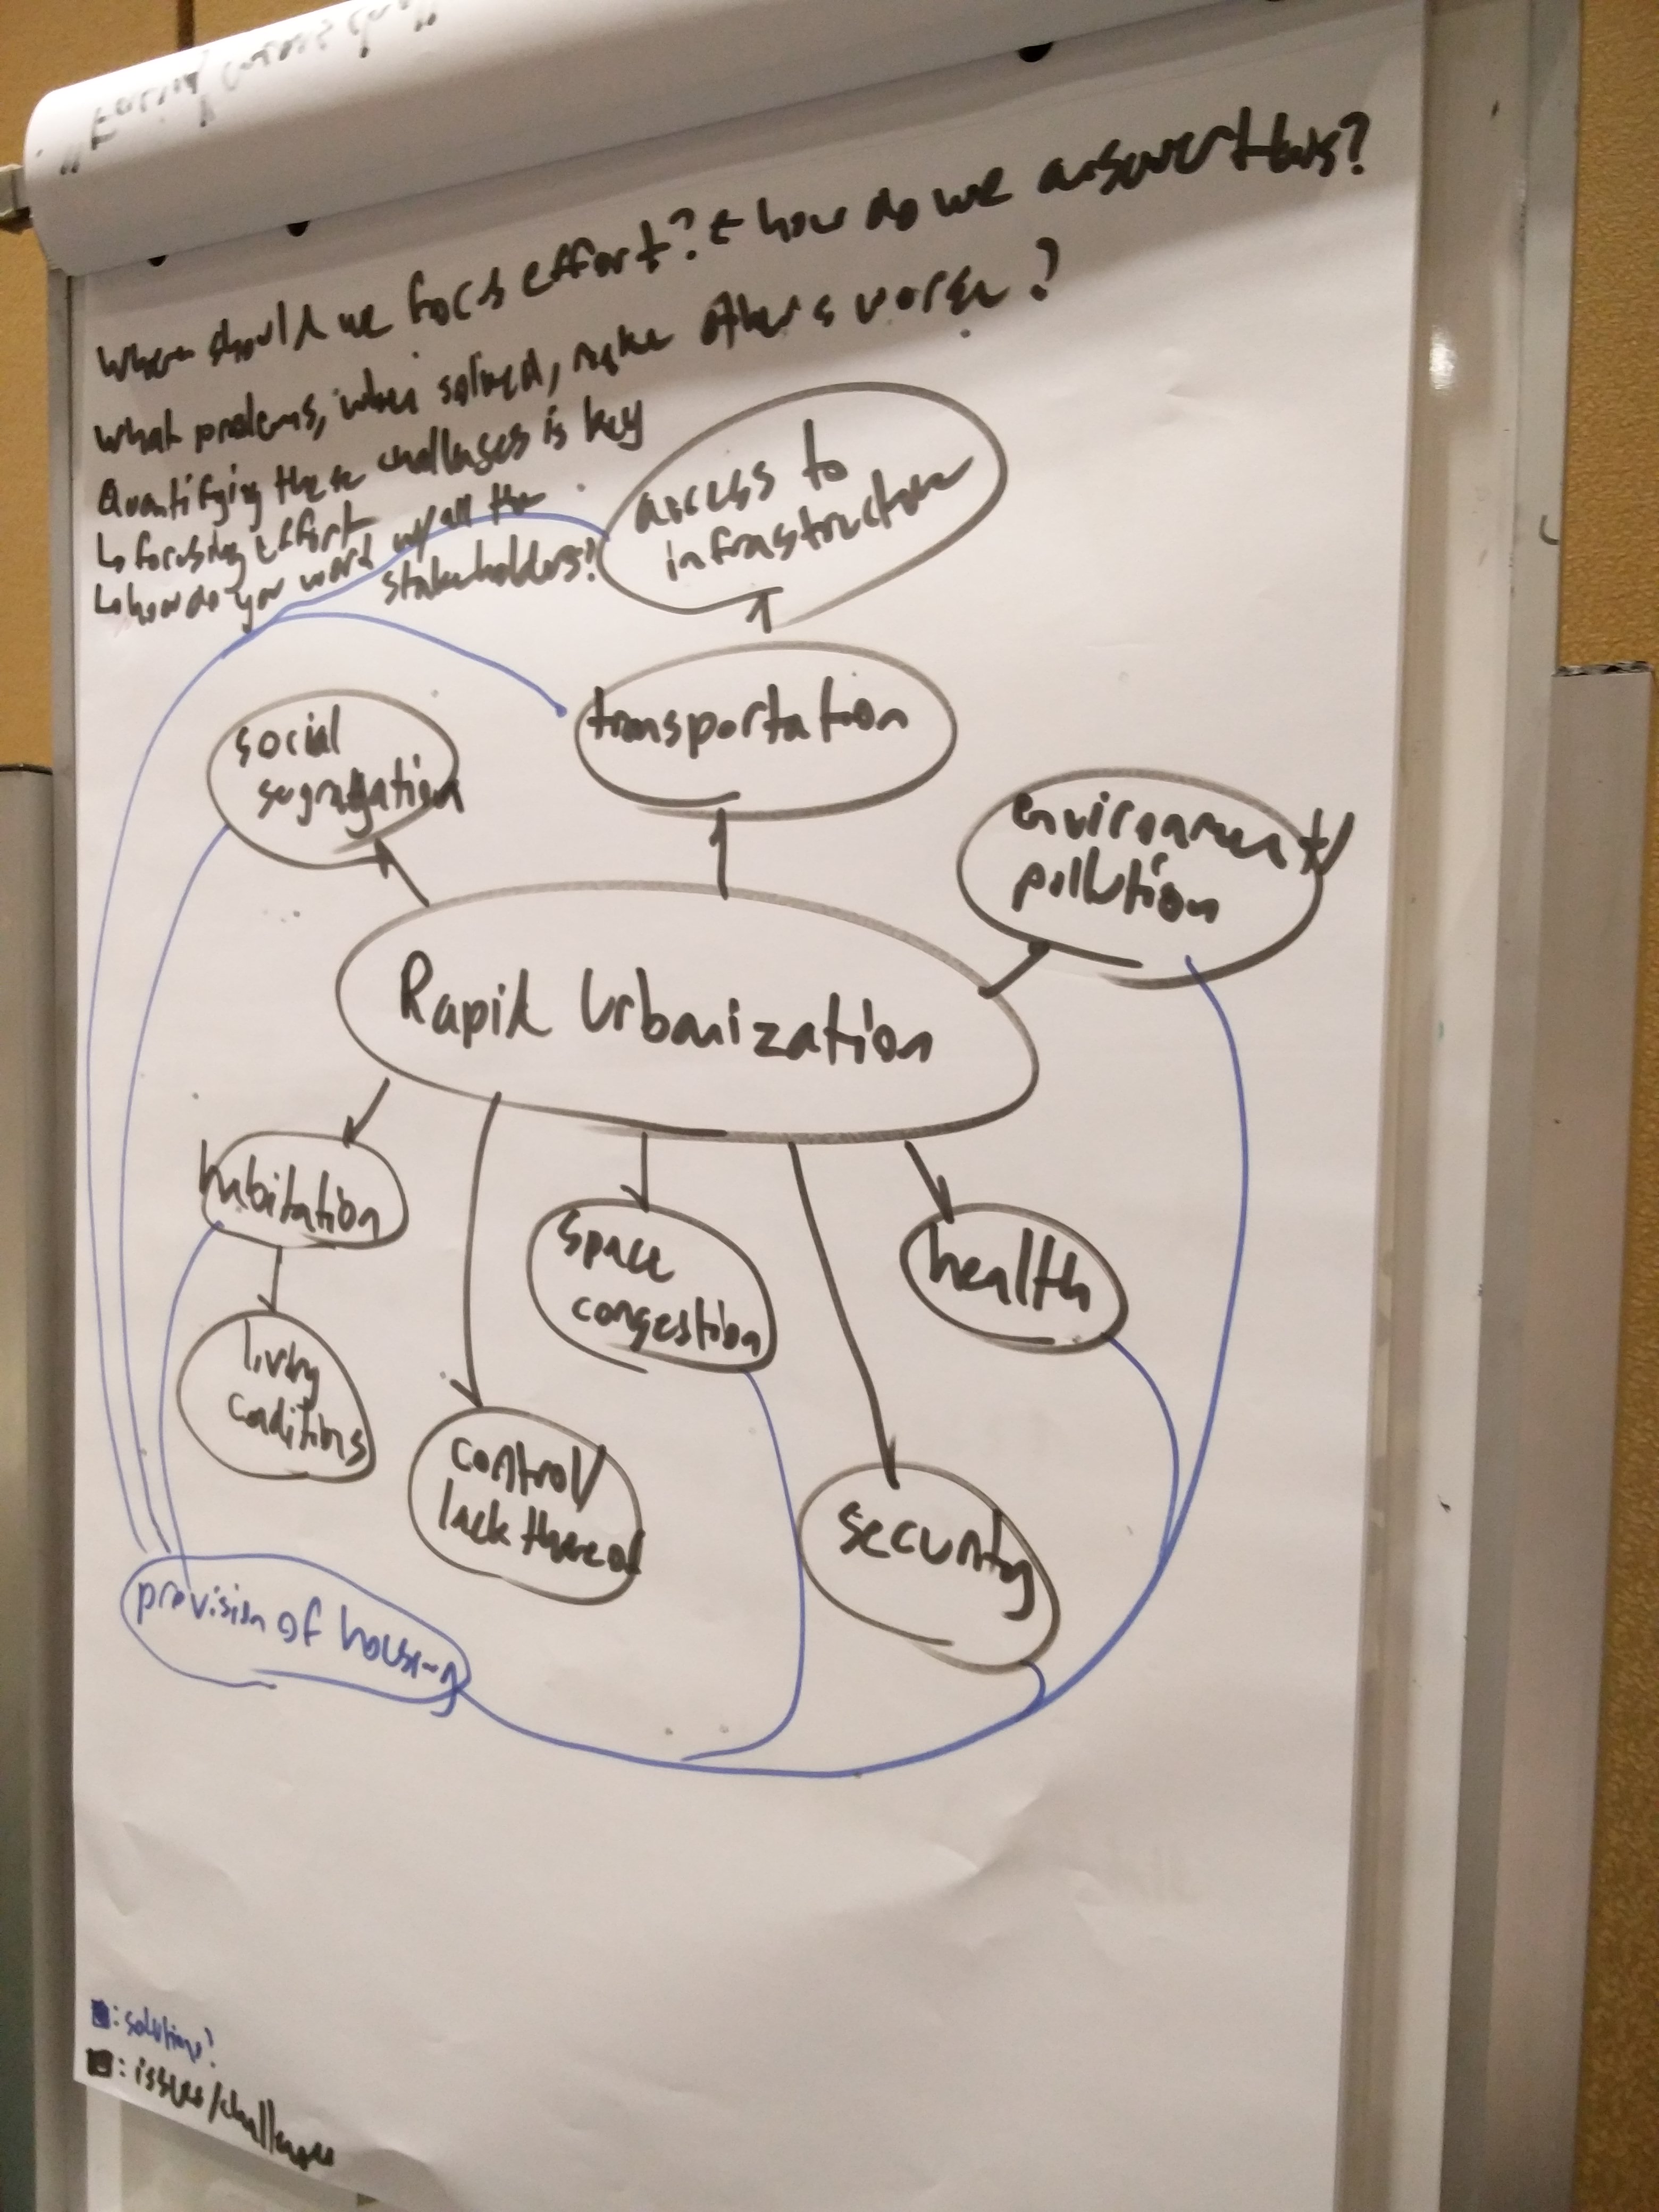 Where should we focus effort? & how do we answer this?
What problems, when solved, make others worse?
Quantifying these challenges is key
↳ focusing effort
↳ how do you work w/all the
stakeholders?
access to
infrastructure
transportation
social
segragation
environment/
pollution
Rapid Urbanization
habitation
space
congestion
health
living
conditions
control/
lack thereof
security
provision of housing
: solutions?
: issues/challenges